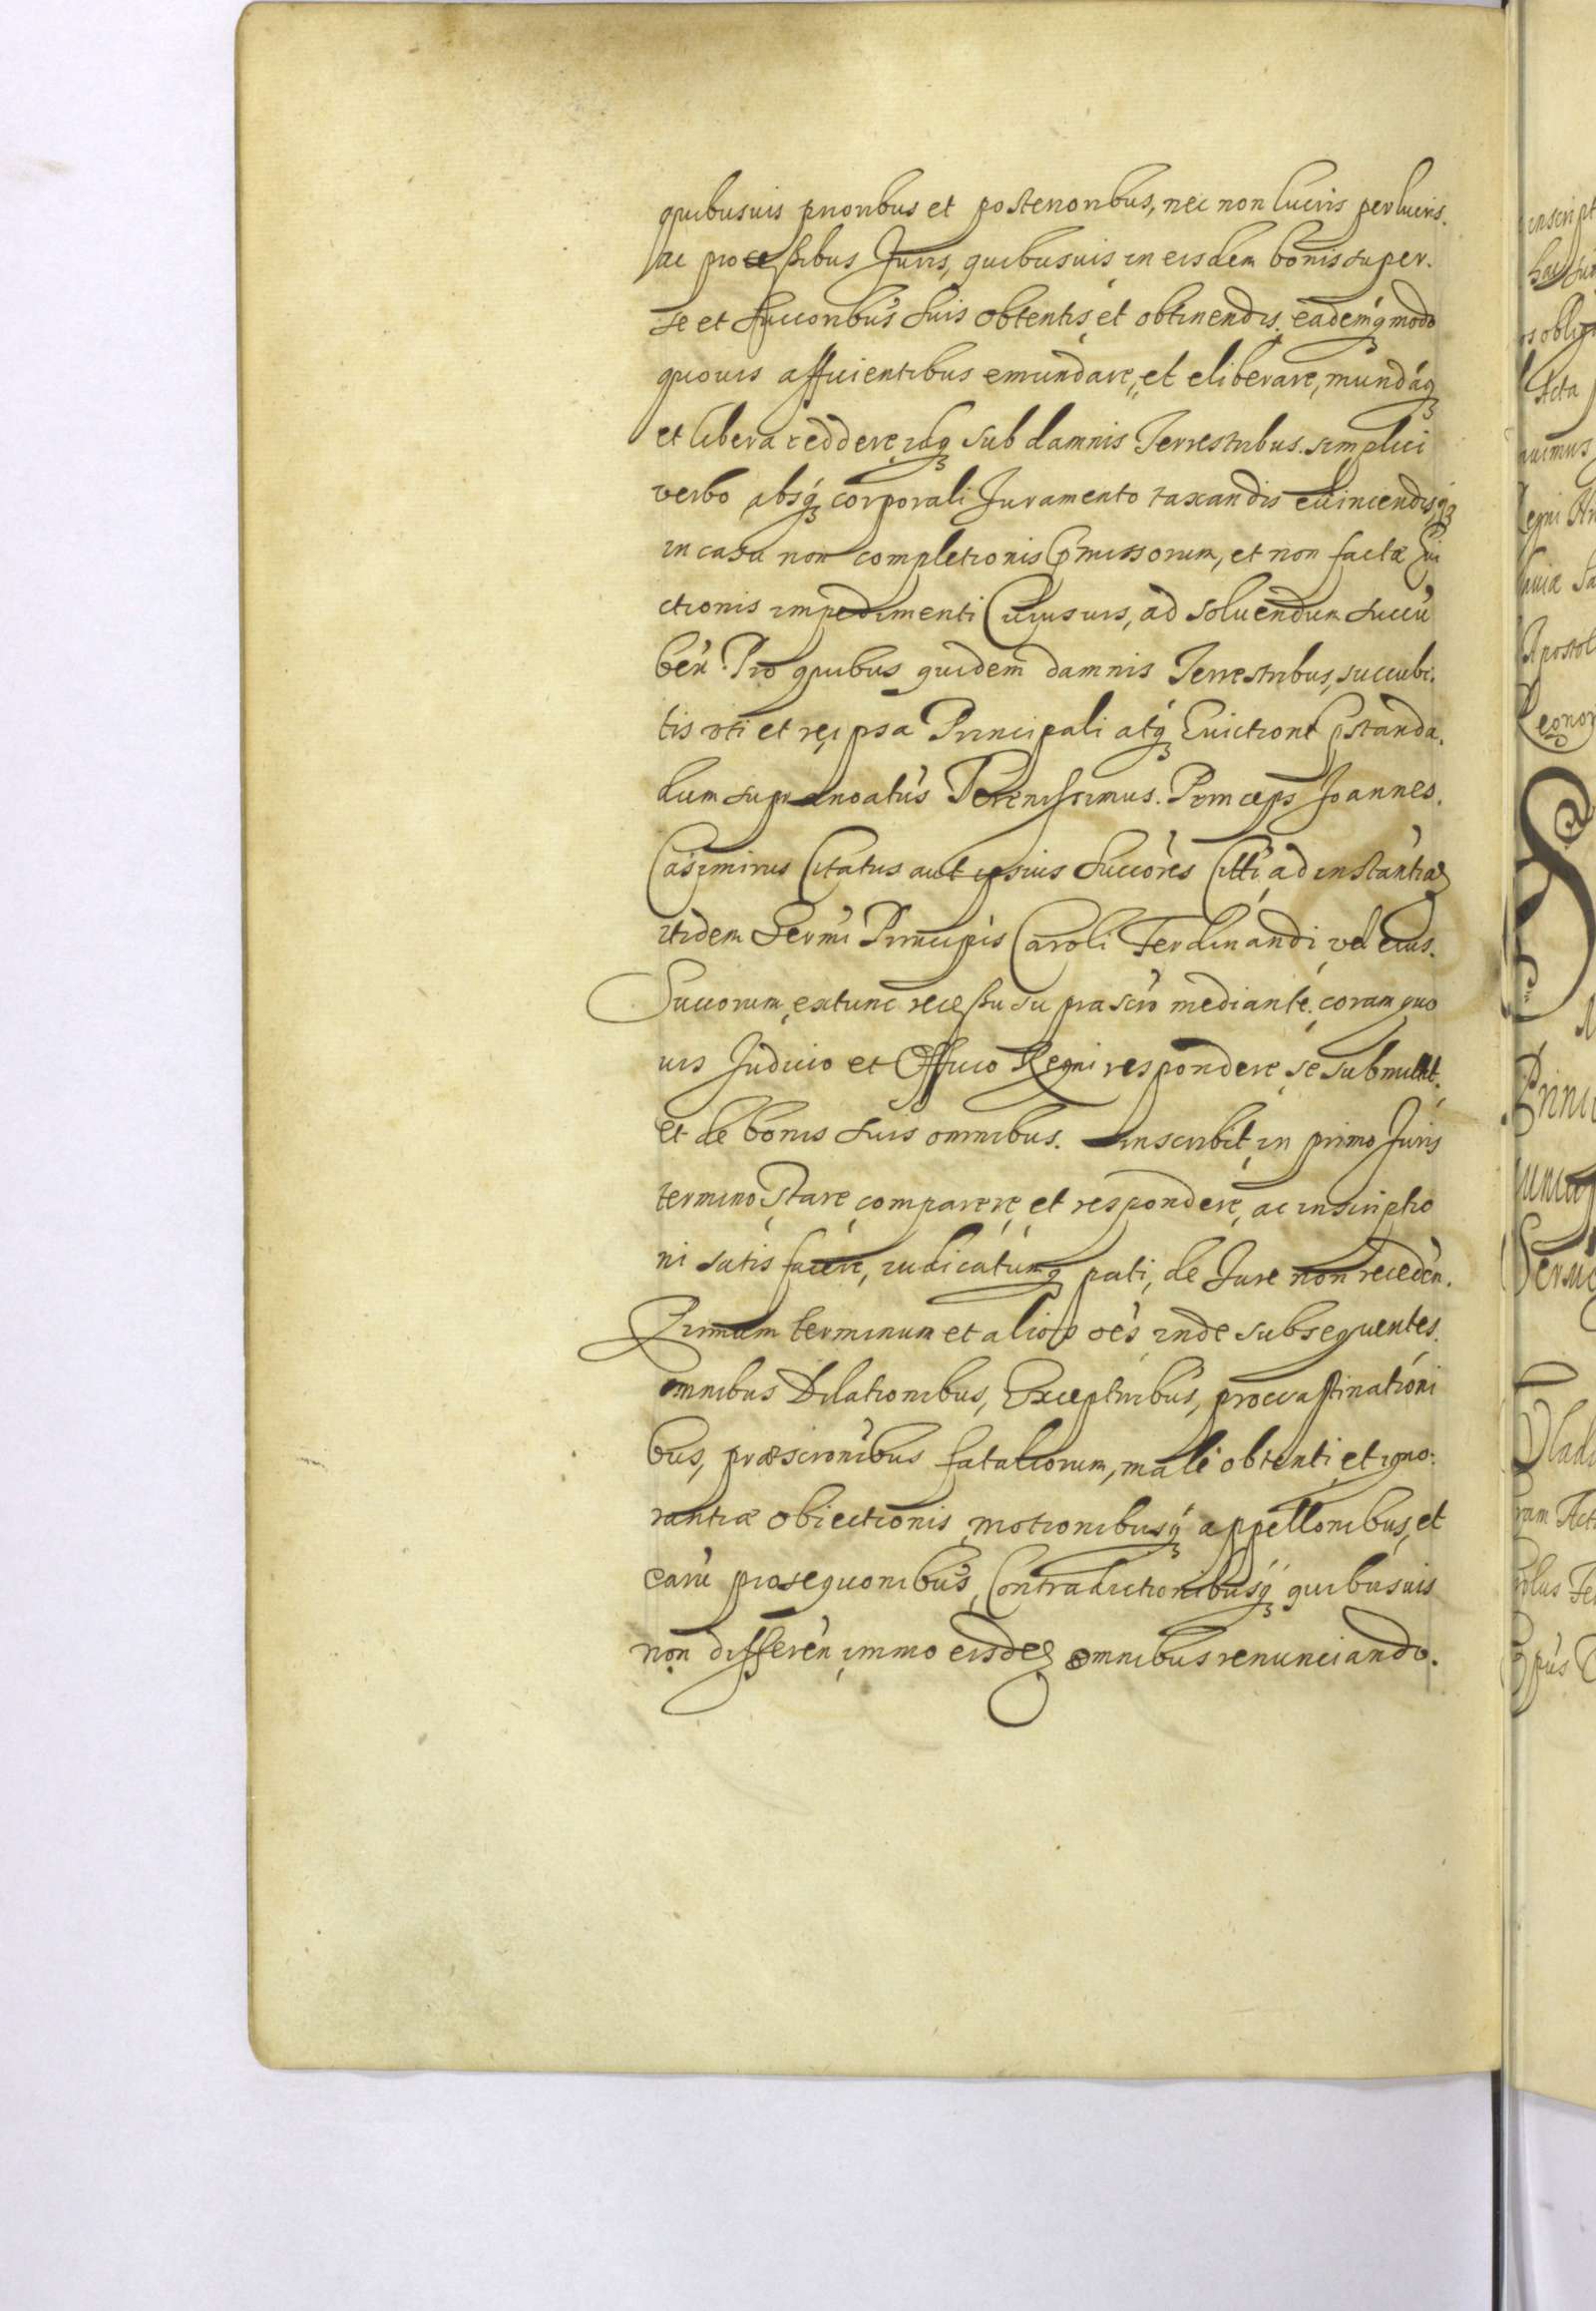 quibusuis prioribus et posterioribus, nec non lucris perlucris.
ac processibus Juris, quibusuis in eisdem bonis super.
se et succoribus suis obtentis, et obtinendis, eademq modo
quouis afficientibus emundare, et eliberare, mundaq
et libera reddere, idq sub damnis Terrestribus. simplici
verbo absq corporali Juramento taxandis euincendisq
in casu non completionis pmissorum, et non factæ Eui
ctionis impedimenti Cuiusuis, ad soluendum succu
ben. Pro quibus quidem damnis Terrestribus, succubi.
tis oti et re ipsa Principali atq Euictione pstanda.
dum supranoatus Serenissimus. Princeps Joannes.
Casimirus Citatus aut ipsius Succores Citti, ad instantiam
itidem Sermi Principis Caroli Ferdinandi, vel eius.
Succorum, extunc recessu suprascro mediante, coram quo
uis Judicio et Officio Regni respondere, se submittit.
et de bonis suis omnibus. inscribit, in primo Juris
termino, stare, comparere, et respondere, ac inscriptio
ni satis facere, iudicatumq pati, de Jure non receden.
Primum terminum et alios oes inde subsequentes.
omnibus Dilationibus, Exceptnibus, procrastinationi
bus, præscronibus fataliorum, male obtenti, et igno:
rantiæ obiectionis, motionibusq appellonibus, et
earu prosequonibus, Contradictionibusq quibusuis
non differen, immo eisdem omnibus renunciando.